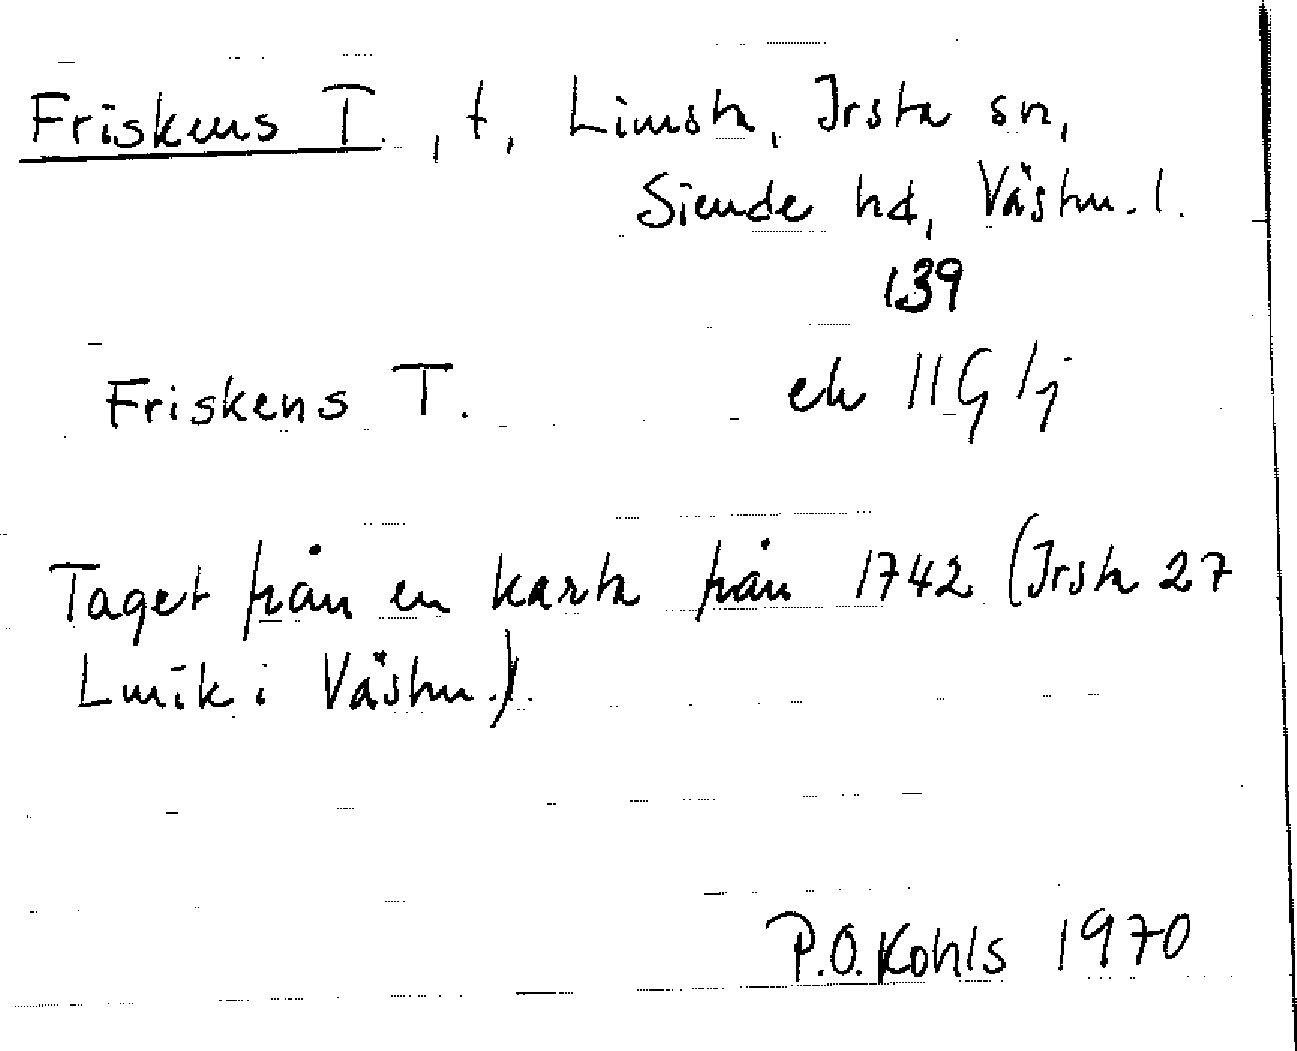 Friskens T., t, Limsta, Irsta sn,
Siende hd, Västm. l.
139
Friskens T. ek 11G 1j
Taget från en karta från 1742 (Irsta 27
Lmik i Västm.).
P.O. Kohls 1970